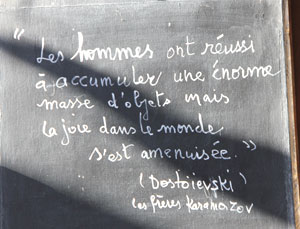 “Les hommes ont réussi
à accumuler une énorme
masse d'objets mais
la joie dans le monde
s'est amenuisée.”
(Dostoïevski)
Les frères Karamazov